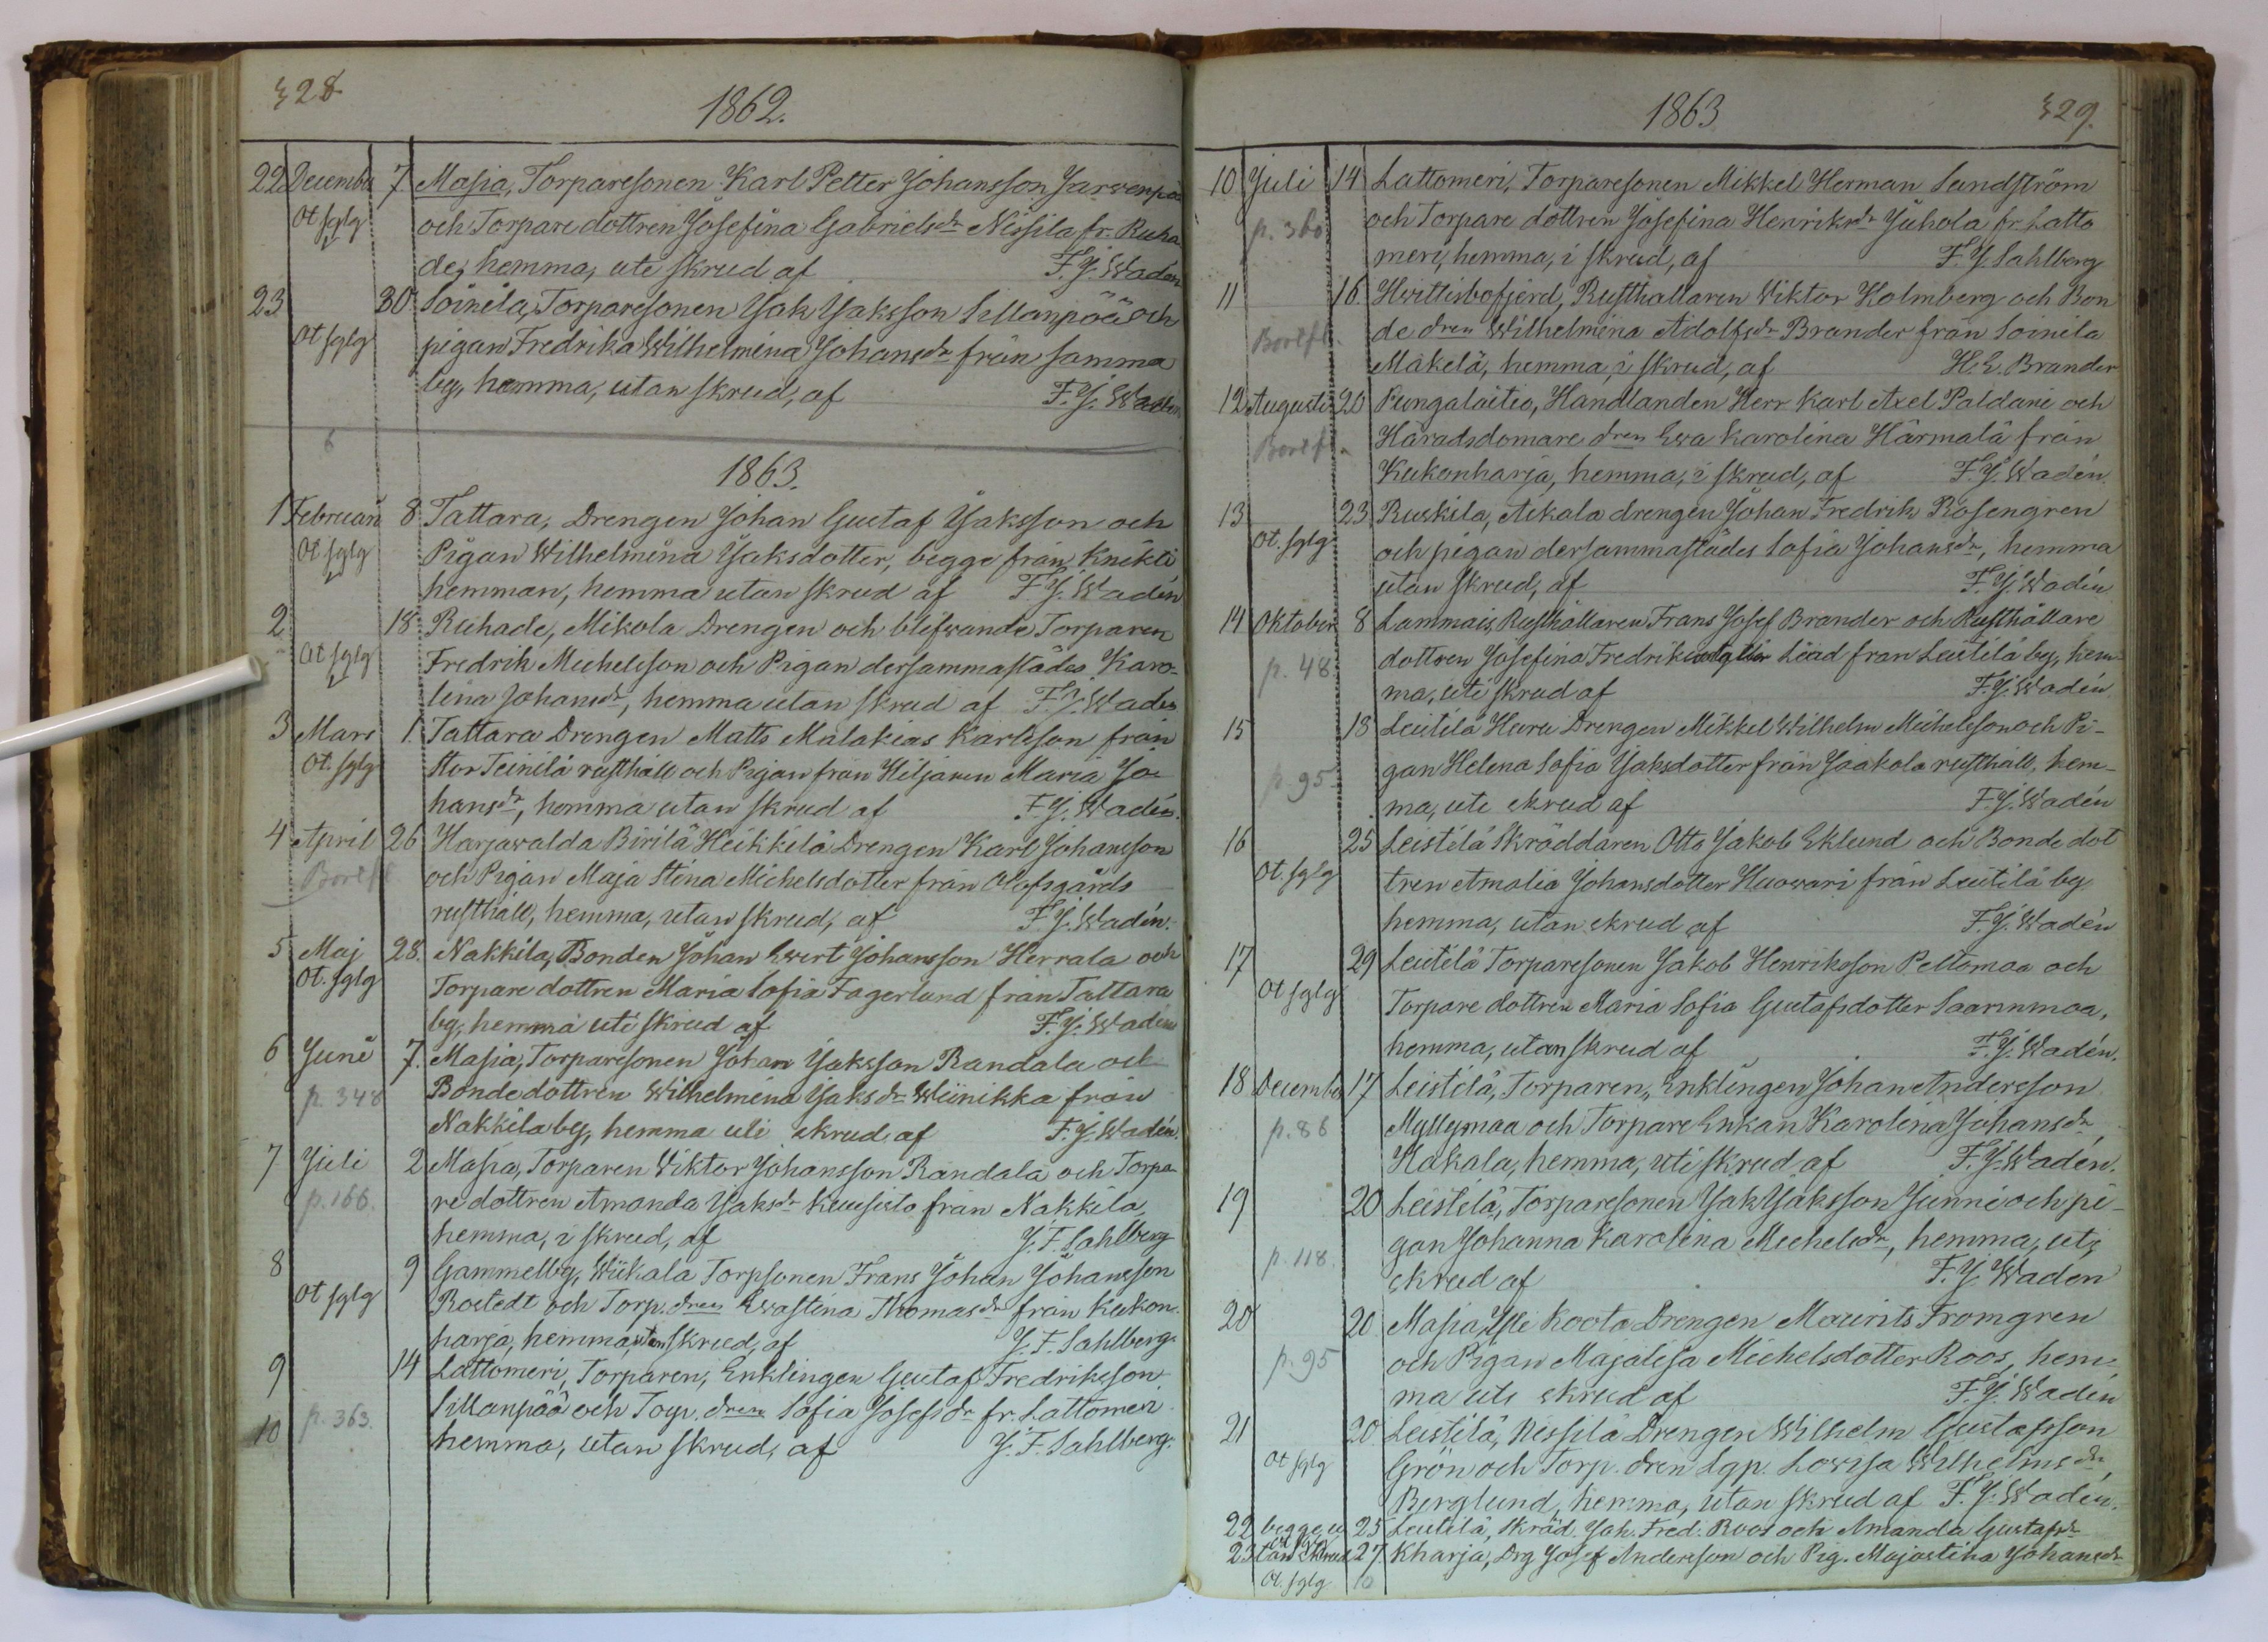 328
1862.
22 December 7 Masia, Torparesonen Karl Petter Johansson Jarvenpä
Ot sglg och Torparedottren Josefina Gabrielsdr Nissila fr. Ruha
de, hemma, uti skrud af F. J. Wadén
23 30 Soinila, Torparesonen Jak Jaksson Sillanpöä och
Ot sglg pigan Fredrika Wilhelmina Johansdr från samma
by, hemma, utan skrud, af F. J. Wadén
6
1863.
1 Februari 8 Tattara, Drengen Johan Gustaf Jaksson och
Ot sglg Pigan Wilhelmina Jaksdotter, begge från Knikti
hemman, hemma utan skrud af F. J. Wadén
2 18 Ruhade, Mikola Drengen och blifwande Torparen
Ot sglg Fredrik Michelsson och Pigan dersammastädes Karo-
lina Johansdr, hemma utan skrud af F. J. Wadén
3 Mars 1. Tattara Drengen Matts Malakias Karlsson från
Ot. sglg Stor Teinilä rusthåll och Pigan från Hiljanen Maria Jo-
hansdr, hemma utan skrud af F. J. Wadén.
4 April 26 Harjawalda Birilä Heikkilä Drengen Karl Johansson
Bortfl och Pigan Maja Stina Michelsdotter från Olofsgårds
rusthåll, hemma, utan skrud, af F. J. Wadén.
5 Maj 28. Nakkila, Bonden Johan Evert Johansson Herrala och
Ot. sglg Torpare dottren Maria Sofia Fagerlund från Tattara
by, hemma uti skrud af F. J. Wadén
6 Juni 7. Masia, Torparesonen Johan Jaksson Randala och
p. 348 Bondedottren Wilhelmina Jaksdr Wiinikka från
Nakkila by, hemma uti skrud, af F. J. Wadén.
7 Juli 2 Masia, Torparen Viktor Johansson Randala och Torpa
p. 166. re dottren Amanda Jaksdr Kuusisto från Nakkila,
hemma, i skrud, af J. F. Sahlberg
8 9 Gammelby, Wiikala Torpsonen Frans Johan Johansson
Ot sglg Rostedt och Torp. dren Ewastina Thomasdr från Kukon
harja, hemma, utan skrud, af J. F. Sahlberg.
9 14 Lattomeri, Torparen, Enklingen Gustaf Fredriksson
p. 363. Sillanpöä och Torp. dren Sofia Josefsdr fr. Lattomeri
10 hemma, utan skrud, af J. F. Sahlberg.
1863 329.
10 Juli 14 Lattomeri, Torparesonen Mikkel Herman Sundström
p. 360 och Torpare dottren Josefina Henriksdr Juhola fr. Latto
meri, hemma, i skrud, af F. J. Sahlberg
11 16 Hvittisbofjerd, Rusthållaren Viktor Holmberg och Bon
Bortfl. de dren Wilhelmina Adolfsdr Brander från Soinila
Mäkelä, hemma, i skrud, af H. E. Brander
12 Augusti 20 Pungalaitio, Handlanden Herr Karl Axel Paldani och
Bortfl. Häradsdomare dren Ewa Karolina Härmälä från
Kukonharja, hemma, i skrud, af F. J. Wadén.
13 23 Ruskila, Aekala drengen Johan Fredrik Rosengren
Ot. sglg och pigan dersammastädes Sofia Johansdr, hemma
utan skrud, af F. J. Wadén
14 Oktober 8 Lammais, Rusthållaren Frans Josef Brander och Rusthållare
p. 48. dottren Josefina Fredrika Lead från Leistilä by, hem-
ma, uti skrud af F. J. Wadén.
15 18 Leistilä Haru Drengen Mikkel Wilhelm Michelsson och Pi-
p. 95. gan Helena Sofia Jaksdotter från Jaakola rusthåll, hem-
ma, uti skrud af F. J. Wadén
16 25 Leistilä Skräddaren Otto Jakob Eklund och Bonde dot
Ot. sglg tren Amalia Johansdotter Huovari från Leistilä by
hemma, utan skrud af F. J. Wadén
17 29 Leistilä Torparesonen Jakob Henriksson Peltomaa och
Ot sglg Torpare dottren Maria Sofia Gustafsdotter Saarinmaa,
hemma, utan skrud af F. J. Wadén.
18 December 17 Leistilä, Torparen, Enklingen Johan Andersson
p. 86 Myllymaa och Torpare Enkan Karolina Johansdr
Hakala, hemma, uti skrud af F. J. Wadén.
19 20 Leistilä, Torparesonen Jak Jaksson Junni och pi-
p. 118. gan Johanna Karolina Michelsdr, hemma, uti
skrud af F. J. Wadén
20 20 Masia, Yli Koota Drengen Maurits Fromgren
p. 95 och Pigan Majalisa Michelsdotter Roos, hem-
ma uti skrud af F. J. Wadén
21 20 Leistilä, Nissilä Drengen Wilhelm Gustafsson
Ot sglg Grön och Torp. dren Lgp. Lovisa Wilhelmsdr
Berglund, hemma, utan skrud af F. J. Wadén.
22 begge u 25 Leistilä, Skräd. Joh. Fred. Roos och Amanda Gustafsdr
23 tan skrud 27 Kharja, Drg Josef Andersson och Pig. Majastina Johansdr
Ot. sglg 10